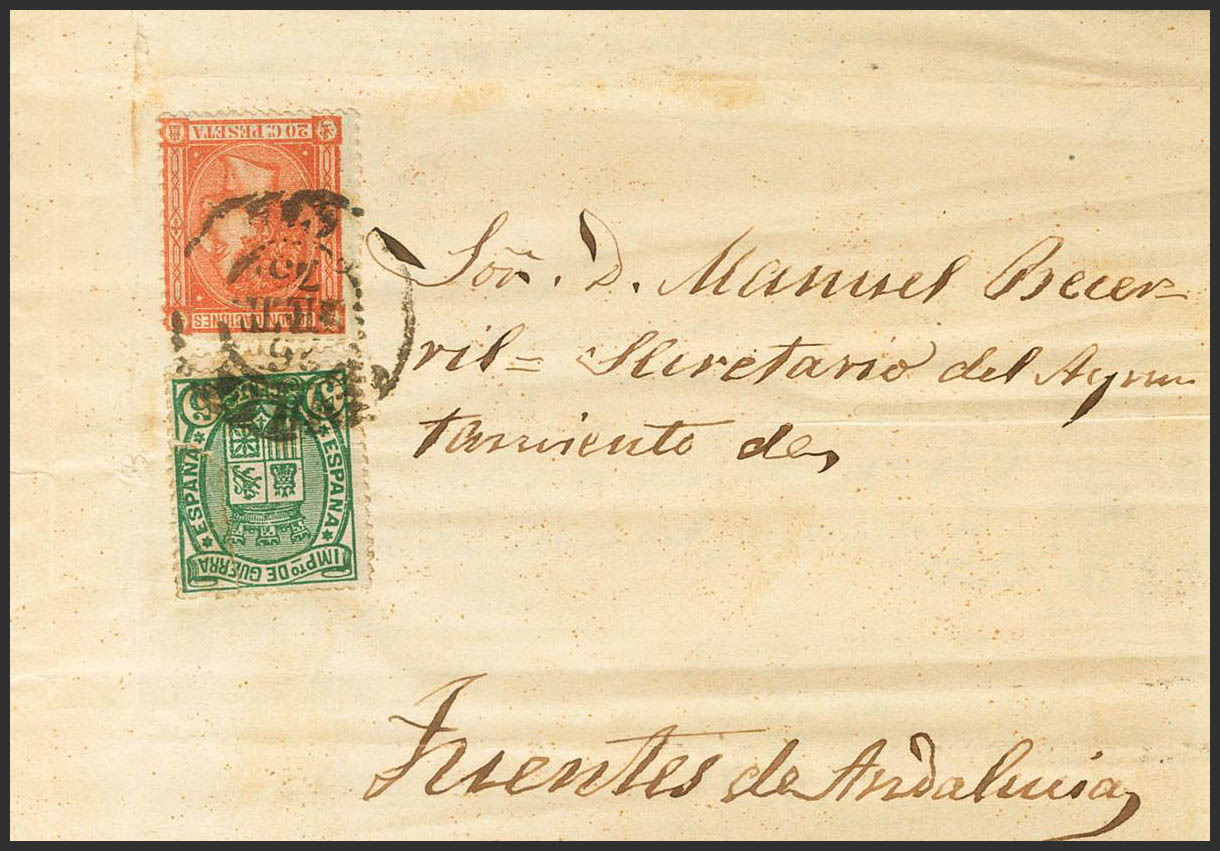 20 C. PESETA
COMUNICACIONES
ESPAÑA
ESPAÑA
IMPTO DE GUERRA
Sor. D. Manuel Becer-
ril= Secretario del Ayun
tamiento de,
Fuentes de Andalucia,